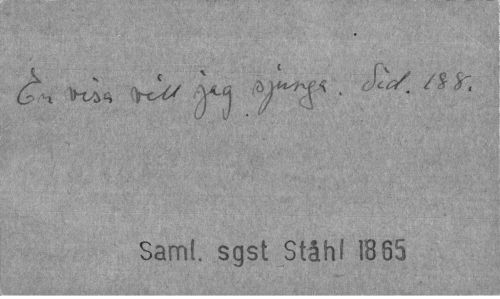 En visa vill jag sjunga. Sid. 188.
Saml. sgst Ståhl 1865